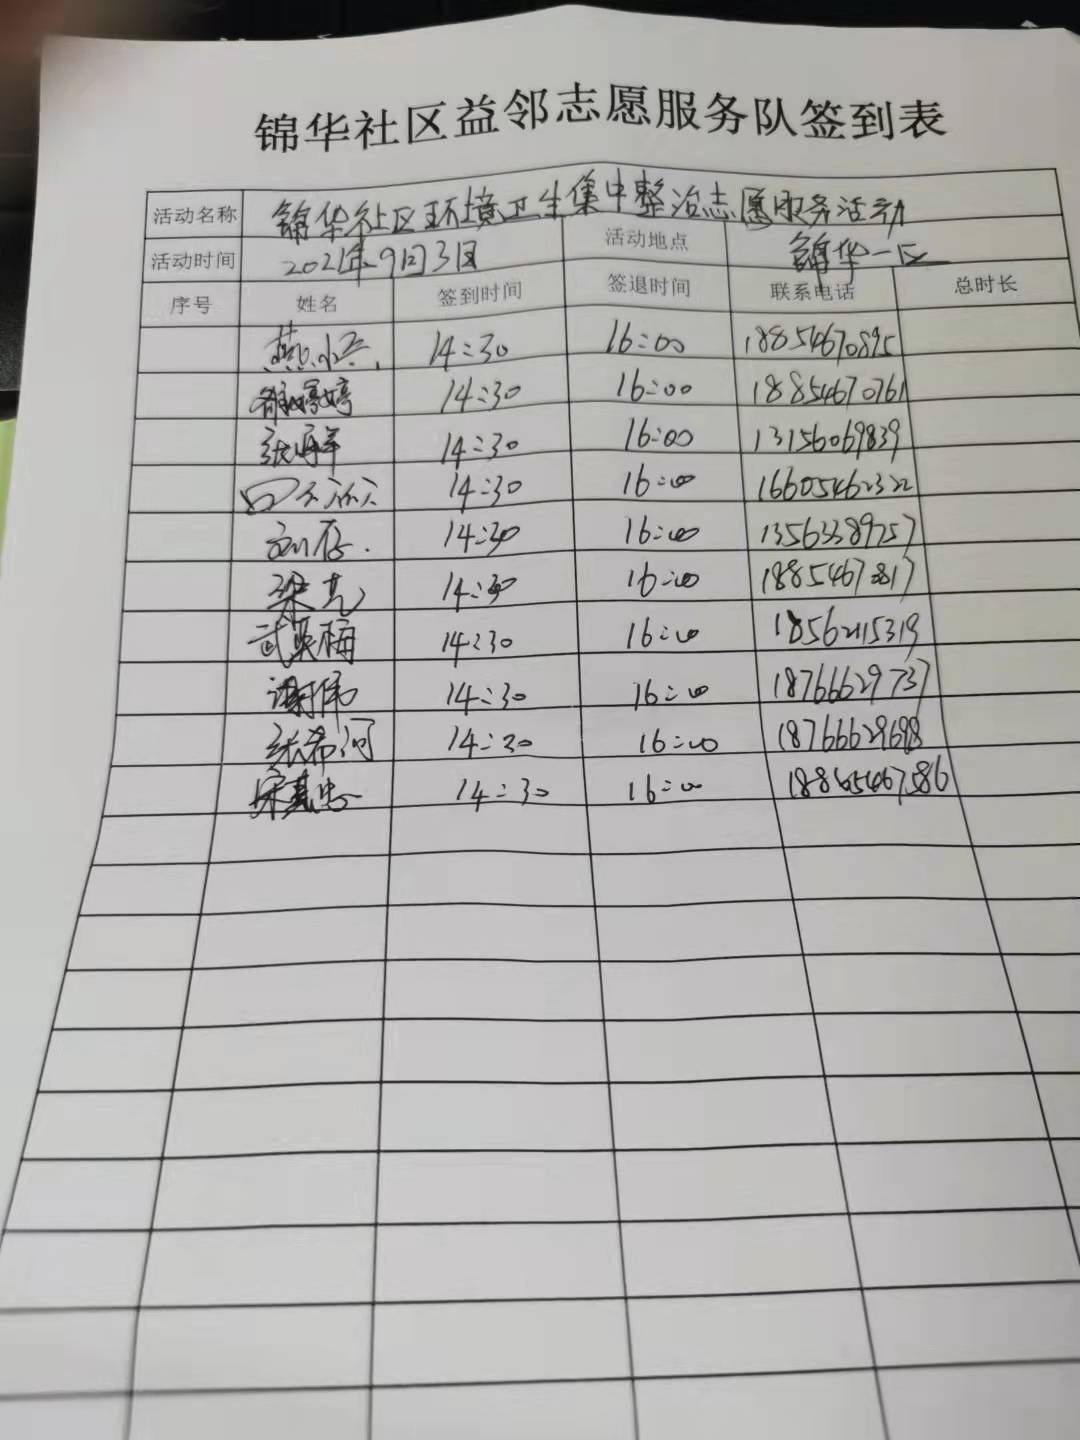 锦华社区益邻志愿服务队签到表
活动名称 锦华社区环境卫生集中整治志愿服务活动
活动时间 2021年9月3日 活动地点 锦华一区
序号 姓名 签到时间 签退时间 联系电话 总时长
14:30 16:00 18854670895
婷婷 14:30 16:00 18854670761
14:30 16:00 13156069839
14:30 16:00 16605462322
刘存 14:30 16:00 13563389757
梁克 14:30 16:00
武英梅 14:30 16:00 18562115319
谢伟 14:30 16:00 18766629737
张希河 14:30 16:00
14:30 16:00